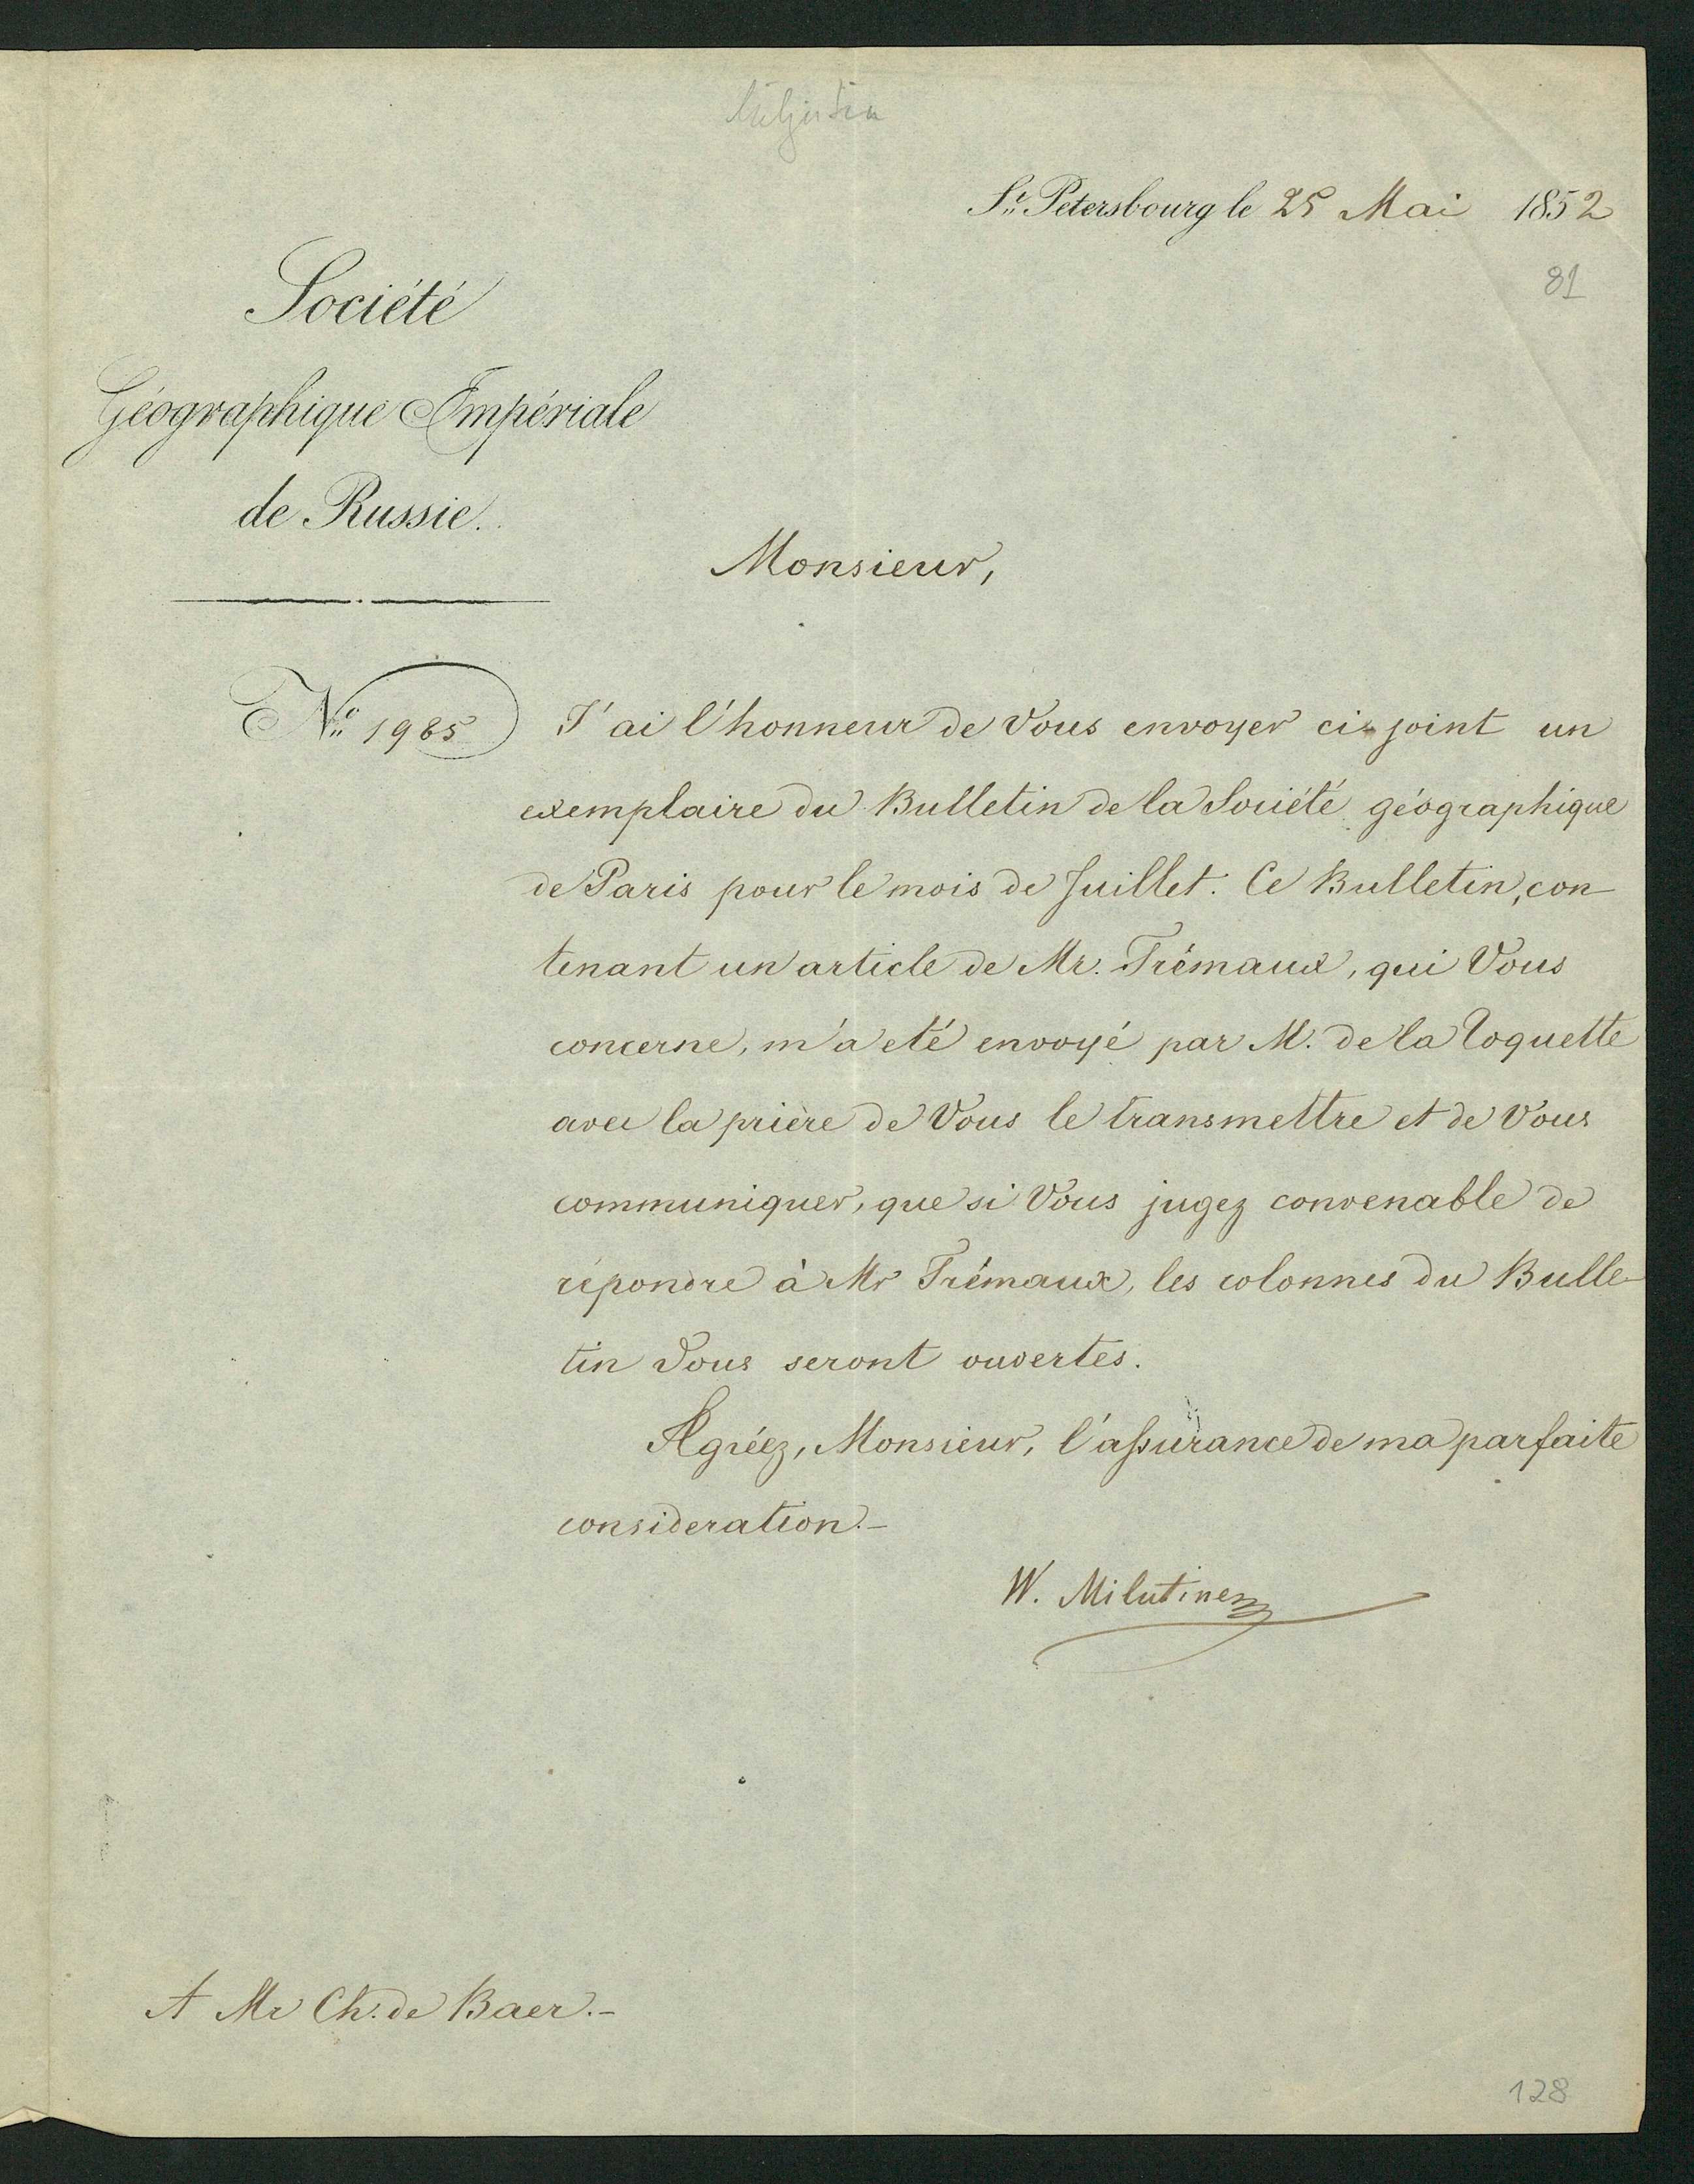 Miljutin
St. Petersbourg le 25 Mai 1852
81
Société
Géographique Impériale
de Russie.
Monsieur,
No. 1985
J'ai l'honneur de Vous envoyer ci-joint un
exemplaire du Bulletin de la Société géographique
de Paris pour le mois de Juillet. Ce Bulletin, con
tenant un article de Mr. Trémaux, qui Vous
concerne, m'a eté envoyé par M. de la Roquette
avec la prière de Vous le transmettre et de Vous
communiquer, que si Vous jugez convenable de
répondre à Mr Trémaux, les colonnes du Bulle-
tin Vous seront ouvertes.
Agréez, Monsieur, l'assurance de ma parfaite
consideration.-
W. Milutine
A Mr Ch. de Baer.-
128